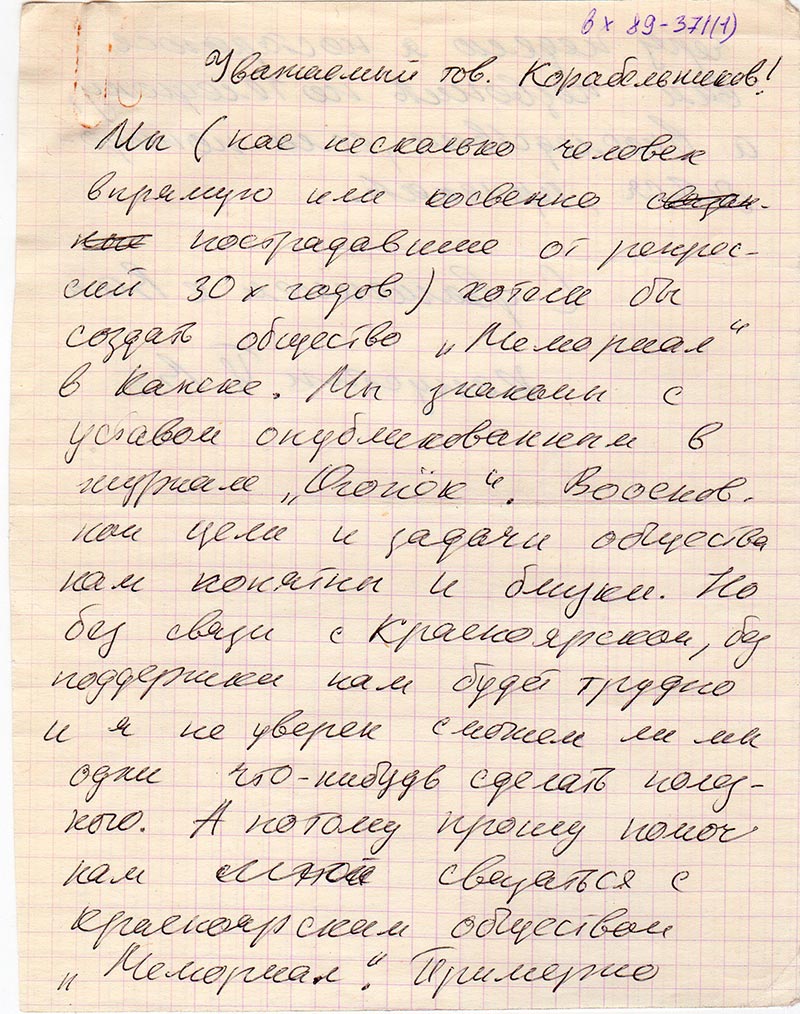 вх 89-371(1)
Уважаемый тов. Корабельников!
Мы (нас несколько человек
впрямую или косвенно
пострадавшие от репрес-
сий 30х годов) хотели бы
создать общество „Мемориал“
в Канске. Мы знакомы с
уставом опубликованным в
журнале „Огонёк“. Воснов-
ном цели и задачи общества
нам понятны и близки. Но
без связи с Красноярском, без
поддержки нам будет трудно
и я не уверен сможем ли мы
одни что-нибудь сделать полез-
ного. А потому прошу помоч
нам связаться с
красноярским обществом
„Мемориал“. Примерно